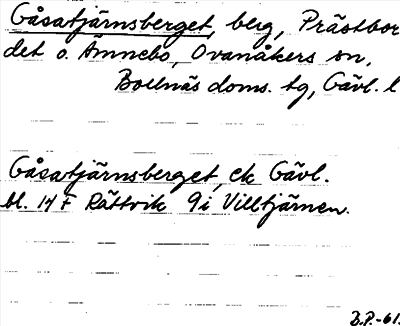 Gåsatjärnsberget, berg, Prästbor
det o. Ännebo, Ovanåkers sn,
Bollnäs doms. tg, Gävl. l
Gåsatjärnsberget, ek Gävl.
bl. 14 F Rättvik 9i Villtjärnen.
B.P.-61.